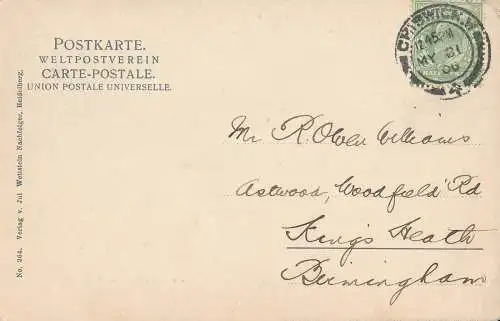 POSTKARTE.
WELTPOSTVEREIN
CARTE-POSTALE.
UNION POSTALE UNIVERSELLE.
CHISWICK.W
12.45PM
MY 21
06
Mr R. Owen Williams
Astwood, Woodfield Rd
King's Heath
Birmingham
No. 264. Verlag v. Jul. Wettstein Nachfolger, Heidelberg.